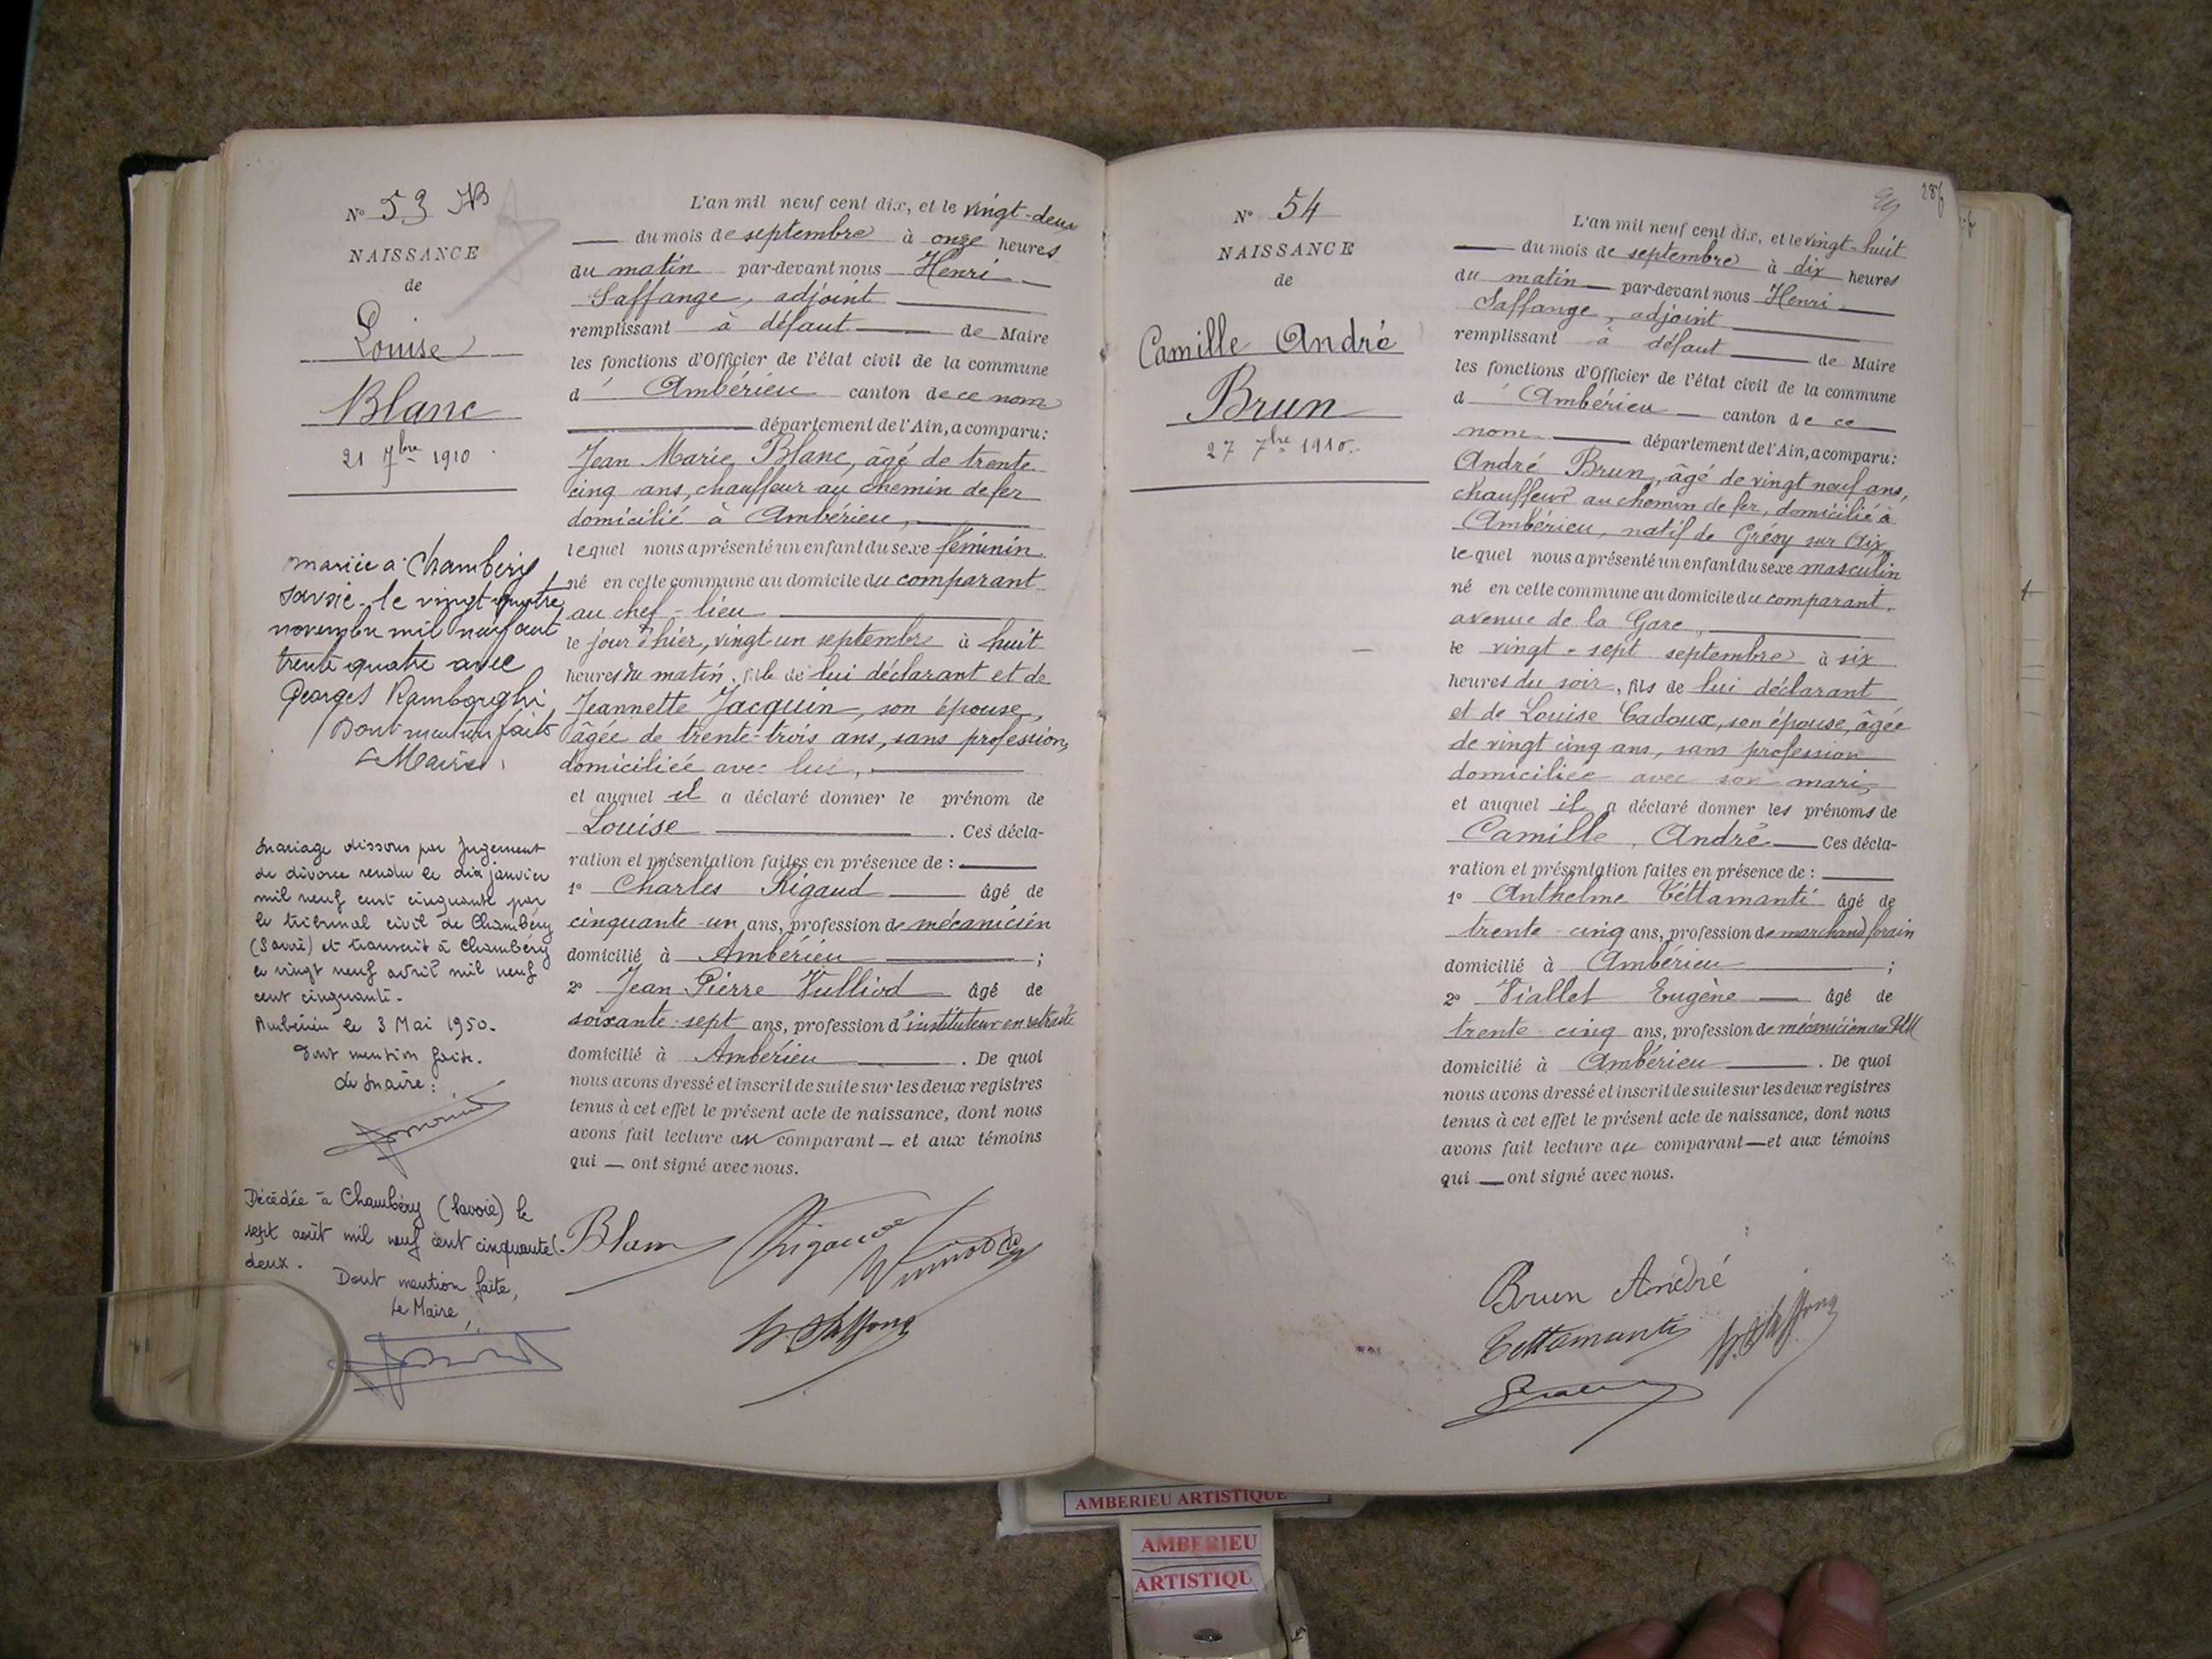 N° 53
NAISSANCE
de
Louise
Blanc
21 7bre 1910
mariée à Chambéry
savoie le vingt quatre
novembre mil neuf cent
trente quatre avec
Georges
Dont mention faite
Le Maire
Mariage dissous par Jugement
de divorce rendu le dix janvier
mil neuf cent cinquante par
le tribunal civil de Chambéry
(Savoie) et transcrit à Chambéry
le vingt neuf avril mil neuf
cent cinquante.
Ambérieu le 3 Mai 1950.
Dont mention faite.
Le Maire :
Décédée à Chambéry (Savoie) le
sept août mil neuf cent cinquante-
deux.
Dont mention faite,
Le Maire,
L'an mil neuf cent dix, et le vingt-deux
du mois de septembre à onze heures
du matin par-devant nous Henri
Saffange, adjoint
remplissant à défaut de Maire
les fonctions d'Officier de l'état civil de la commune
d' Ambérieu canton de ce nom
département de l'Ain, a comparu :
Jean Marie Blanc, âgé de trente
cinq ans, chauffeur au chemin de fer
domicilié à Ambérieu,
lequel nous a présenté un enfant du sexe féminin
né en cette commune au domicile du comparant
au chef-lieu
le jour d'hier, vingt un septembre à huit
heures du matin, fille de lui déclarant et de
Jeannette Jacquin, son épouse,
âgée de trente-trois ans, sans profession,
domiciliée avec lui,
et auquel il a déclaré donner le prénom de
Louise . Ces décla-
ration et présentation faites en présence de :
1° Charles Rigaud âgé de
cinquante-un ans, profession de mécanicien
domicilié à Ambérieu ;
2° Jean Pierre Vulliod âgé de
soixante-sept ans, profession d'instituteur en retraite
domicilié à Ambérieu . De quoi
nous avons dressé et inscrit de suite sur les deux registres
tenus à cet effet le présent acte de naissance, dont nous
avons fait lecture au comparant et aux témoins
qui ont signé avec nous.
Blanc Rigaud
H. Saffange
286
N° 54
NAISSANCE
de
Camille André
Brun
27 7bre 1910.
L'an mil neuf cent dix, et le vingt-huit
du mois de septembre à dix heures
du matin par-devant nous Henri
Saffange, adjoint
remplissant à défaut de Maire
les fonctions d'Officier de l'état civil de la commune
d' Ambérieu canton de ce
nom département de l'Ain, a comparu :
André Brun, âgé de vingt neuf ans,
chauffeur au chemin de fer, domicilié à
Ambérieu, natif de Grésy sur Aix,
lequel nous a présenté un enfant du sexe masculin
né en cette commune au domicile du comparant,
avenue de la Gare,
le vingt-sept septembre à six
heures du soir, fils de lui déclarant
et de Louise Cadoux, son épouse, âgée
de vingt cinq ans, sans profession
domiciliée avec son mari,
et auquel il a déclaré donner les prénoms de
Camille, André Ces décla-
ration et présentation faites en présence de :
1° Anthelme Téttamanti âgé de
trente-cinq ans, profession de marchand forain
domicilié à Ambérieu ;
2° Viallet Eugène âgé de
trente-cinq ans, profession de mécanicien au PLM
domicilié à Ambérieu . De quoi
nous avons dressé et inscrit de suite sur les deux registres
tenus à cet effet le présent acte de naissance, dont nous
avons fait lecture au comparant et aux témoins
qui ont signé avec nous.
Brun André
Tettamanti H. Saffange
AMBERIEU ARTISTIQUE
AMBERIEU
ARTISTIQU